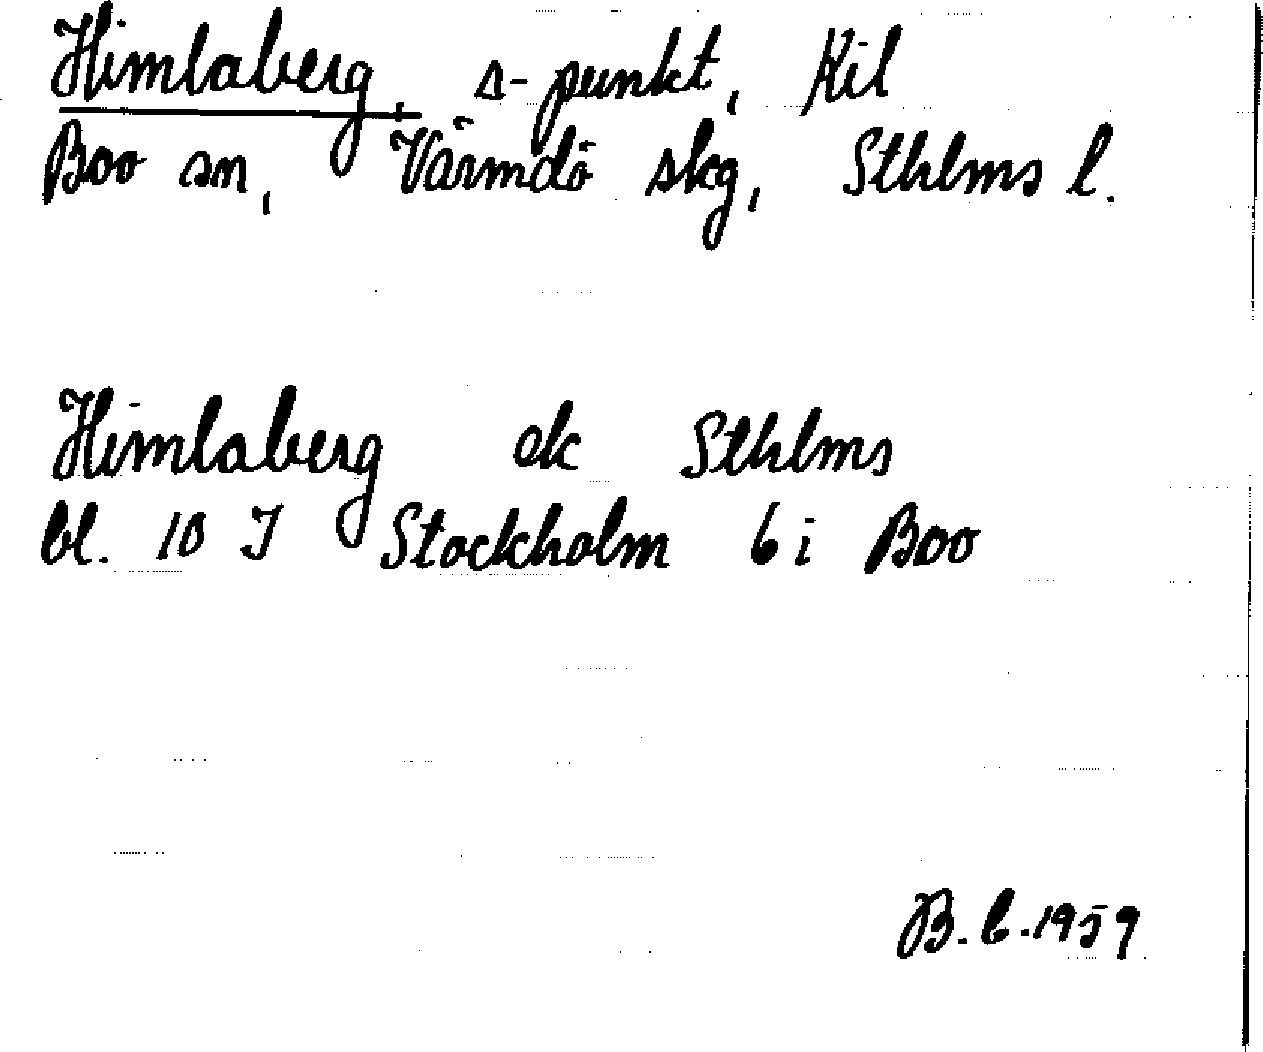 Himlaberg, s-punkt, Kil
Boo sn, Värmdö skg, Sthlms l.
Himlaberg ek Sthlms
bl. 10 I Stockholm 6 i Boo
B. L. 1959